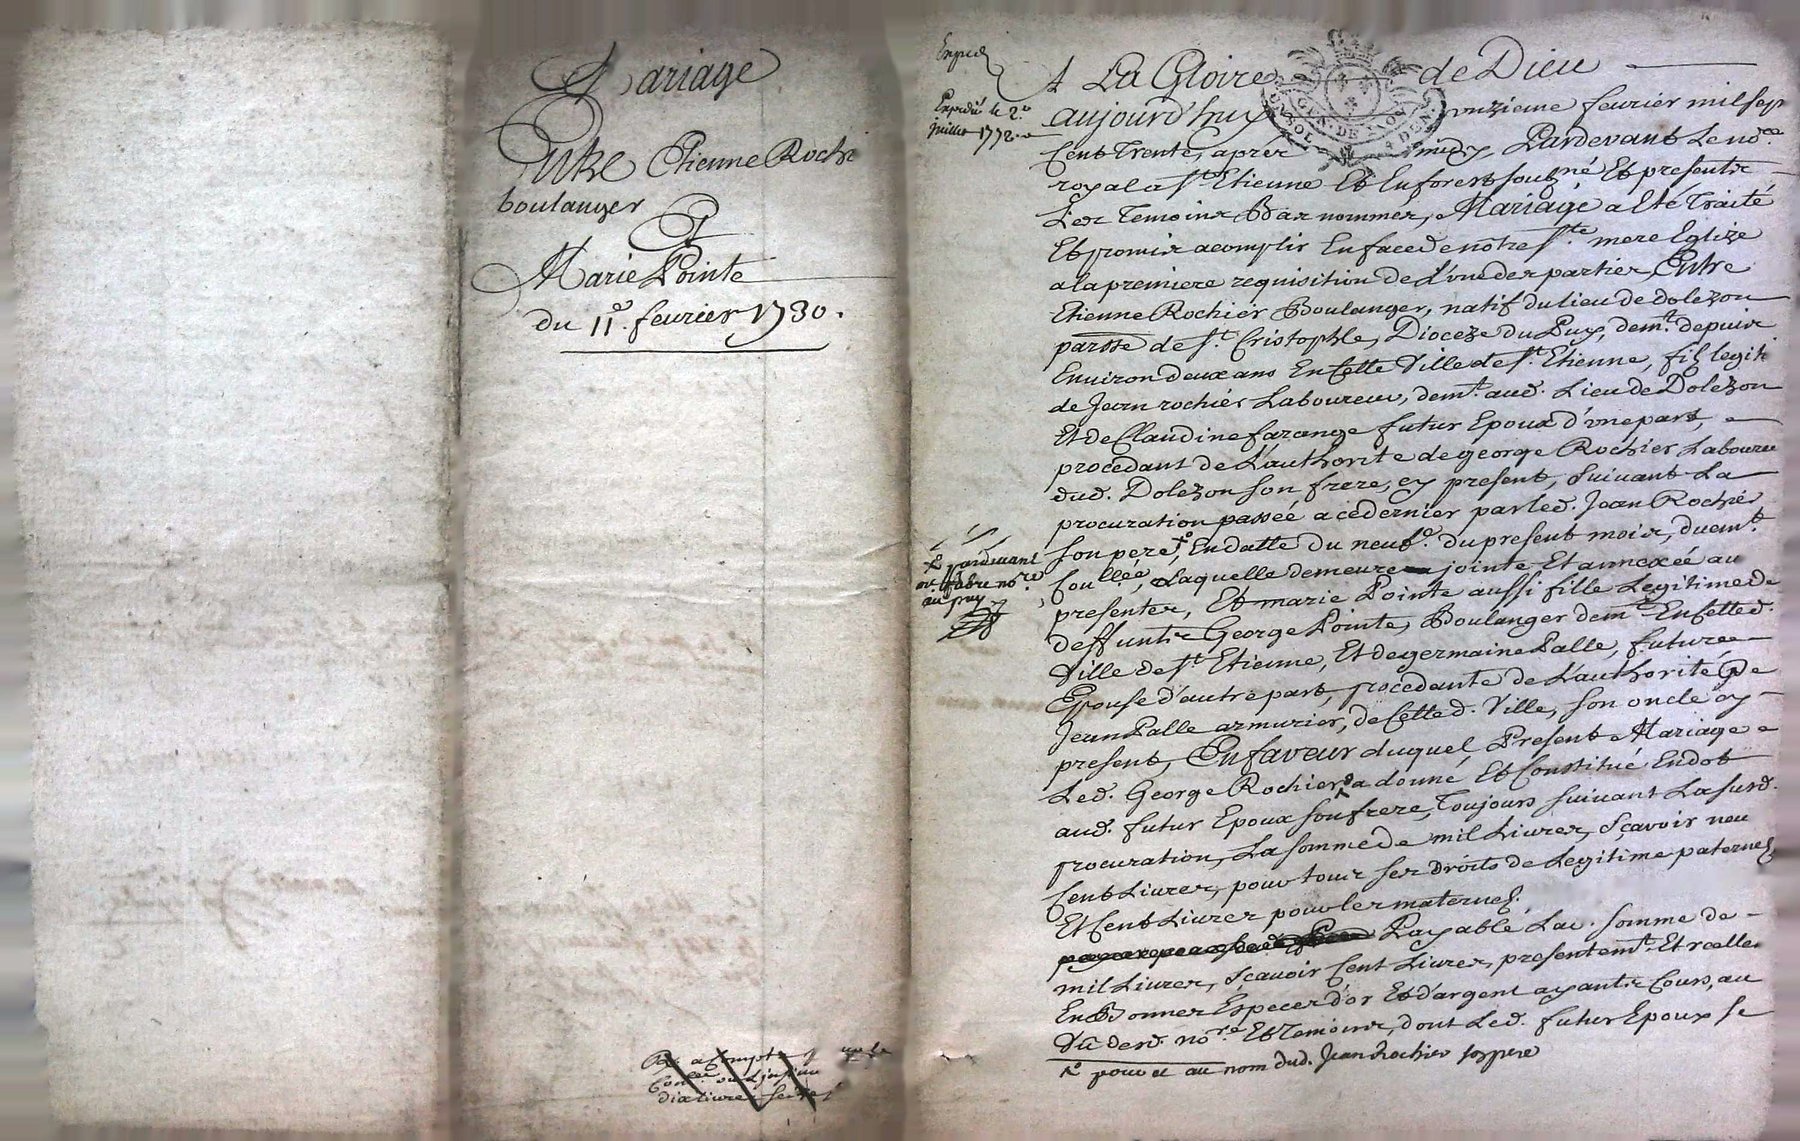 Mariage
Entre Etienne Rochi
boulanger
Et
Marie Pointe
du 11e. fevrier 1730.
Expedié
Expedié le 2e.
juillet 1772
A La Gloire de Dieu
aujourd'huy onzieme fevrier mil sept
Cent Trente, apres midy, Pardevant Le nore.
royal a St. Etienne Et Enforest soubzné Et presentz
Les Temoins Bas nommez, Mariage a Eté Traité
Et promis acomplir En face de nôtre Ste. mere Eglize
a la premiere requisition de L'une des parties, Entre
Etienne Rochier Boulanger, natif du lieu de dolezon
parosse de St. Cristophle, Dioceze du Puy, demt. depuis
Environ deux ans En Cette Ville de St. Etienne, filz legiti
de Jean rochier Laboureur, demt. aud. Lieu de Dolezon
Et de Claudine farange futur Epoux d'une part,
procedant de L'authorité de george Rochier Laboureu
dud. Dolezon son frere, cy present, Suivant La
procuration passéé a ce dernier par led. Jean Rochier
son pere, En datte du neufe. du present mois, duemt.
Coulléé, Laquelle demeure jointe Et annexéé au
presentes, Et marie Pointe aussi fille Legitime de
deffuntz George Pointe, Boulanger demt. En Cetted.
Ville de St. Etienne, Et de germaine Palle, future
Epouse d'autre part, procedante de L'authorité de
Jean Palle armurier, de Cetted. Ville, son oncle cy
present, En faveur duquel Present Mariage
Led. George Rochier a donné Et Constitué En dot
aud. futur Epoux son frere, Toujours suivant La susd.
procuration, La somme de mil Livres, Sçavoir neu
Cent Livres, pour tous ses droits de Legitime paternelz
Et Cent Livres pour les maternelz.
Payable Lad. somme de
mil Livres, Sçavoir Cent Livres, presentemt. Et reelle
En Bonnes Especes d'or Et d'argent ayantz Cours, au
Vû desd. nore. Et Temoins, dont Led. futur Epoux se
pour et au nom dud. Jean Rochier son pere
pardevant
me. fabre nore.
au puy
a Compte
dix livres seize s